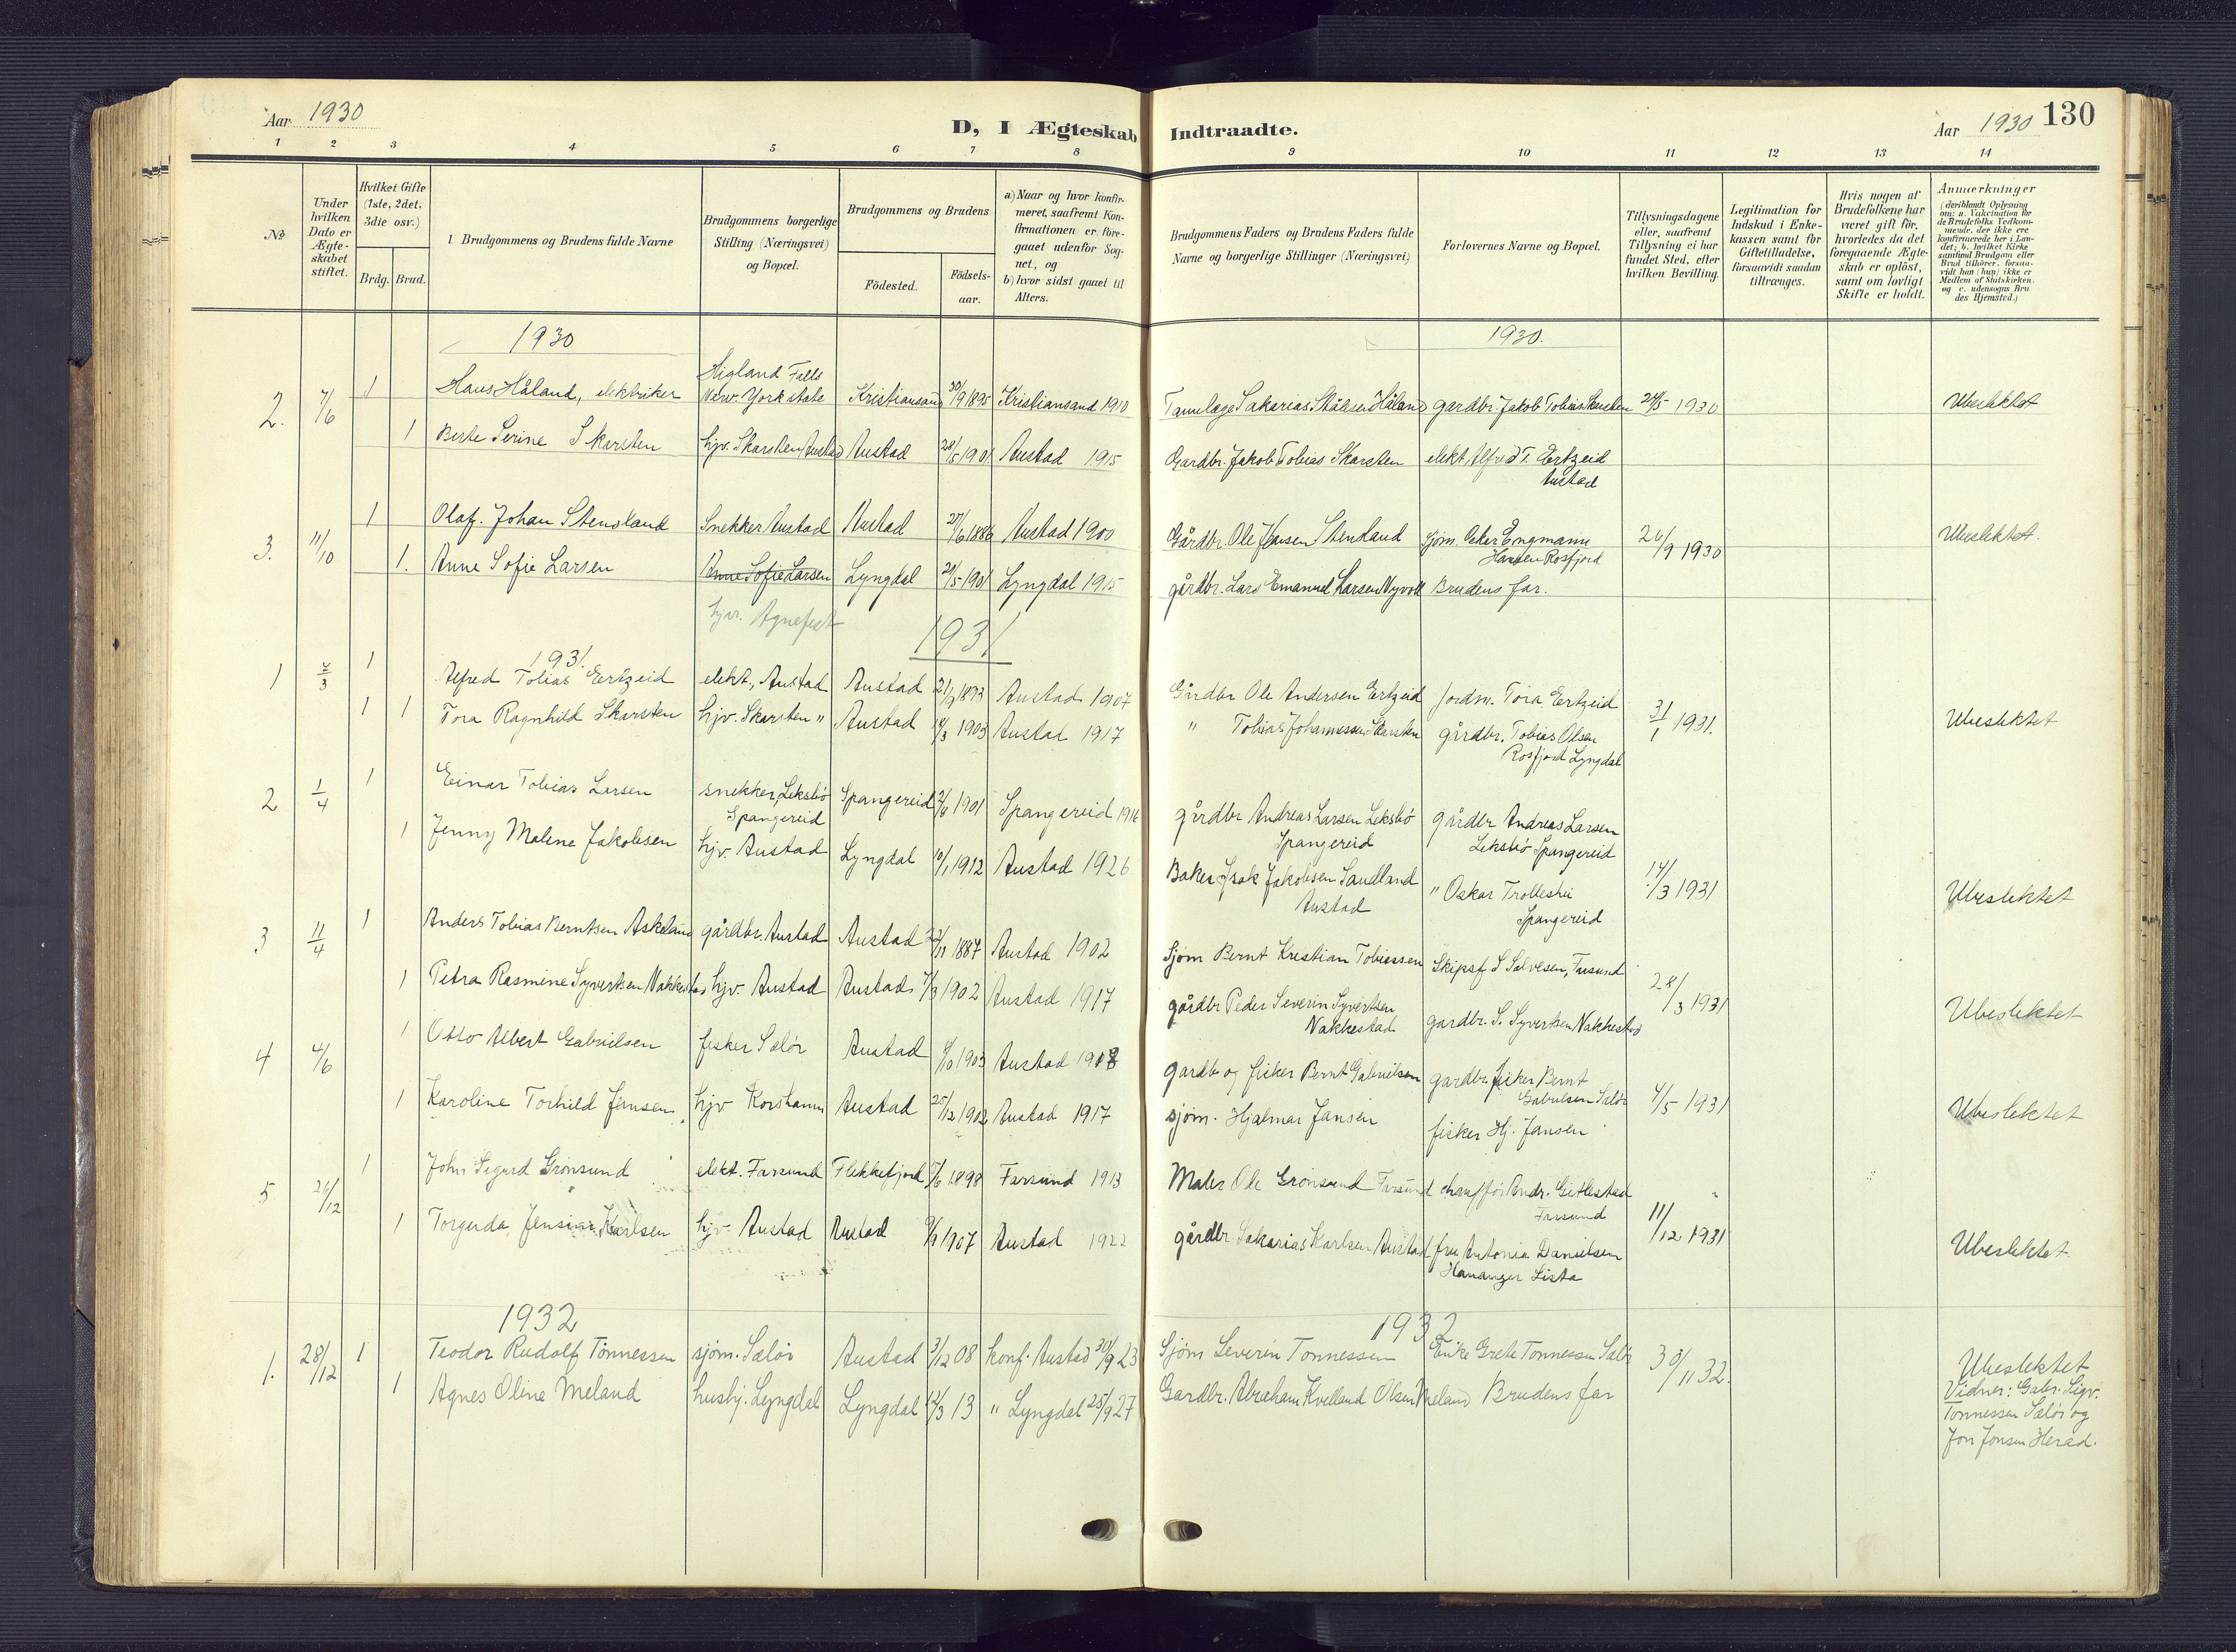 Aar 1930
D, I Ægteskab Indtraadte.
Aar 1930 130
1 2 3 4 5 6 7 8 9 10 11 12 13 14
No
Under hvilken Dato er Ægte-skabet stiftet.
Hvilket Gifte (1ste, 2det, 3die osv.)
Brdg. Brud.
1 Brudgommens og Brudens fulde Navne
Brudgommens borgerlige Stilling (Næringsvei) og Bopæl.
Brudgommens og Brudens
Födested. Födsels-aar.
a) Naar og hvor konfir-meret, saafremt Kon-firmationen er fore-gaaet udenfor Sog-net, og
b) hvor sidst gaaet til Alters.
Brudgommens Faders og Brudens Faders fulde Navne og borgerlige Stillinger (Næringsvei)
Forlovernes Navne og Bopæl.
Tillysningsdagene eller, saafremt Tillysning ei har fundet Sted, efter hvilken Bevilling.
Legitimation for Indskud i Enke-kassen samt for Giftetilladelse, forsaavidt saadan tiltrænges.
Hvis nogen af Brudefolkene har været gift før, hvorledes da det foregaaende Ægte-skab er oplöst, samt om lovligt Skifte er holdt.
Anmærkninger (deriblandt Oplysning om: a. Vakcination for de Brudefolks Vedkom-mende, der ikke ere konfirmerede her i Lan-det; b. hvilket Kirke samfund Brudgom eller Brud tilhører, forsaa-vidt han (hun) ikke er Medlem af Statskirken, og c. udensogns Bru des Hjemsted.)
1930 1930.
2. 7/6 1 Hans Håland, elektriker Higland Falls New. York state Kristiansand 30/9 1895 Kristiansand 1910 Sakarias Håland gardbr. Jakob Tobias Skarsten 24/5 1930 Ubeslektet
1 Berte Serine Skarsten hjv. Skarsten Austad Austad 28/5 1901 Austad 1915 Gardbr. Jakob Tobias Skarsten elekt Alfred T. Ertzeid Austad
3. 11/10 1 Olaf. Johan Stensland Snekker Austad Austad 27/6 1886 Austad 1900 Gårdbr. Ole Jensen Stensland sjøm. Peter Engmann Hansen Rosfjord 26/9 1930 Ubeslektet.
1. Anne Sofie Larsen Anne Sofie Larsen Lyngdal 21/5 1901 Lyngdal 1915 gårdbr. Lars Emanuel Larsen Nyvoll Brudens far.
hjv. Agnefest
1931
1931.
1 7/3 1 Alfred Tobias Ertzeid elekt., Austad Austad 21/9 1893 Austad 1907 Gårdbr Ole Andersen Ertzeid jordm. Tora Ertzeid 31/1 1931. Ubeslektet
1 1 Tora Ragnhild Skarsten hjv. Skarsten " Austad 14/3 1903 Austad 1917 " Tobias Johannessen Skarsten gårdbr. Tobias Olsen Rosfjord Lyngdal
2 1/4 1 Einar Tobias Larsen snekker, Leksbø Spangereid Spangereid 2/9 1901 Spangereid 1916 gårdbr Andreas Larsen Leksbø Spangereid gårdbr Andreas Larsen Leksbø Spangereid 14/3 1931 Ubeslektet
1 Jenny Malene Jakobsen hjv. Austad Lyngdal 10/1 1912 Austad 1926 Baker Isak Jakobsen Sandland Austad " Oskar Trollestei Spangereid
3 11/4 1 Anders Tobias Berntsen Askeland gårdbr. Austad Austad 22/11 1887 Austad 1902 Sjøm Bernt Kristian Tobiassen Skipsf S Salvesen, Farsund 28/3 1931 Ubeslektet
1 Petra Rasmine Syvertsen Nakkestad hjv. Austad Austad 7/3 1902 Austad 1917 gårdbr Peder Severin Syvertsen Nakkestad gardbr. S. Syvertsen Nakkestad
4 4/6 1 Otto Albert Gabrielsen fisker Selør Austad 6/10 1903 Austad 1918 gardbr og fisker Bernt Gabrielsen gardbr. fisker Bernt Gabrielsen Selør 4/5 1931 Ubeslektet
1 Karoline Torhild Jansen hjv Korshamn Austad 25/12 1902 Austad 1917 sjøm. Hjalmar Jansen fisker Hj. Jansen
5 26/12 1 John Sigurd Grönsund elekt. Farsund Flekkefjord 5/6 1898 Farsund 1913 Maler Ole Grönsund Farsund chauffør Andr. Gitlestad Farsund 11/12 1931 Ubeslektet
1 Torgerda Jensine Karlsen hjv. Austad Austad 9/9 1907 Austad 1922 gårdbr Sakarias Karlsen Austad fru Antonia Danielsen Hananger Lista
1932 1932
1. 28/12 1 Teodor Rudolf Tönnessen sjøm. Selør Austad 3/12 08 konf. Austad 30/9 23 Sjøm Severin Tonnessen Enke Grete Tonnessen Selør 30/11 32. Ubeslektet
1 Agnes Oline Meland husbj. Lyngdal Lyngdal 12/3 13 " Lyngdal 25/9 27 Gardbr. Abraham Kvelland Olsen Meland Brudens far Vidner: Gabr. Sigv. Tonnessen Selør og Jon Jonsen Herad.